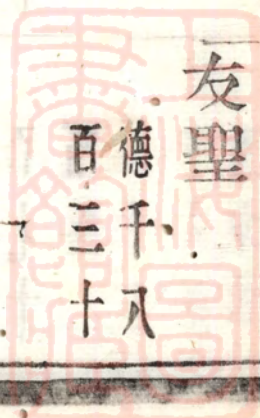 友聖
德千八
百三十